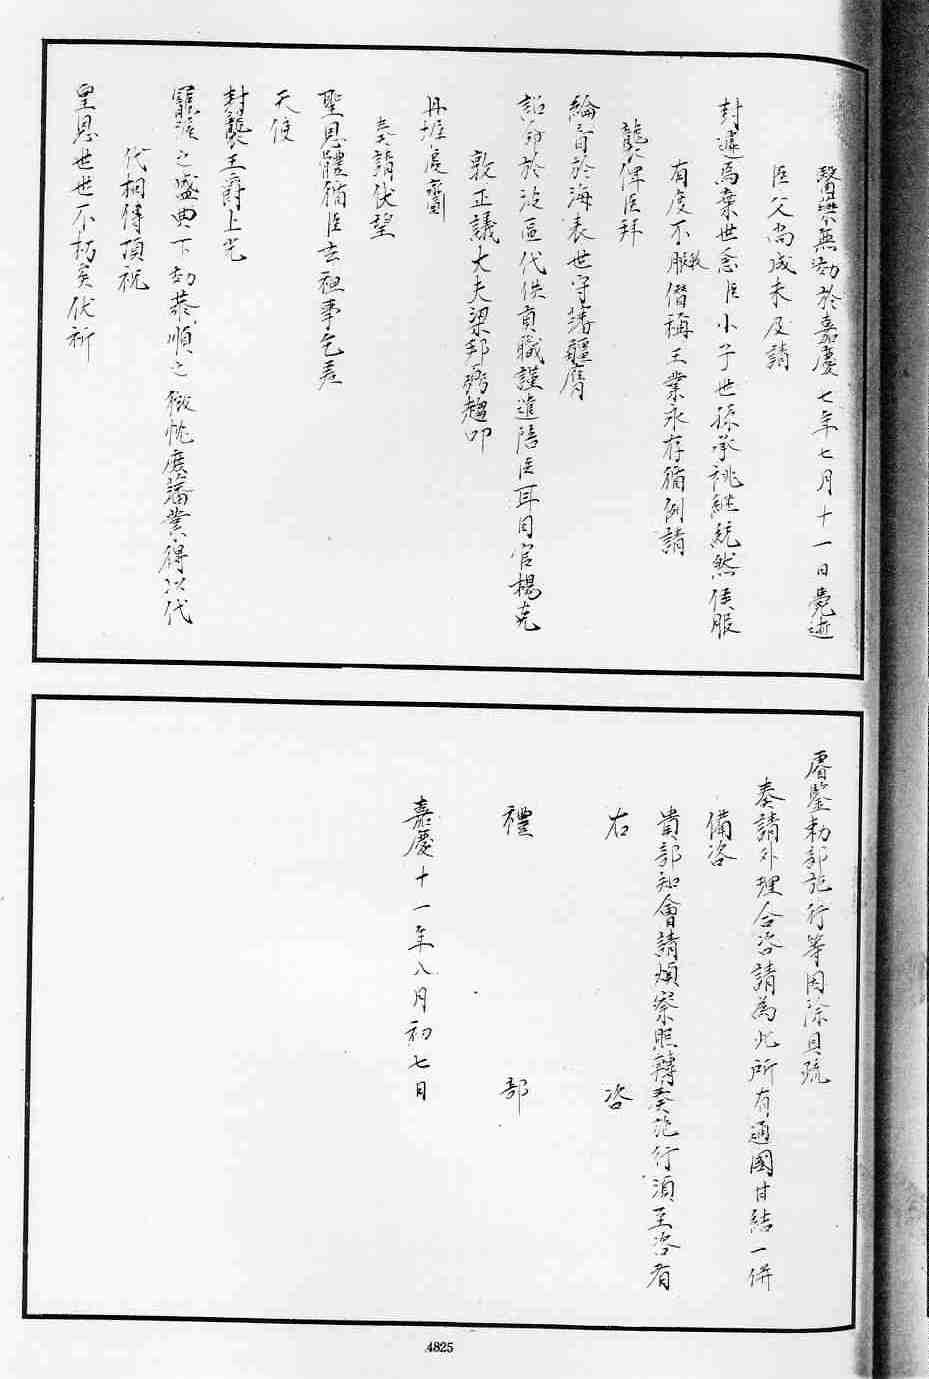 醫藥無効於嘉慶七年七月十一日薨逝
臣父尚成未及請
封遽為棄世念臣小子世孫承祧繼統然侯服
有度不敢僭稱王業永存循例請
襲俾臣拜
綸音於海表世守藩疆膺
詔命於波區代供貢職謹進陪臣耳目官楊克
敦正議大夫梁邦弼趨叩
丹墀虔齎
奏請伏望
聖恩體循臣玄祖事乞差
天使
封襲王爵上光
寵渙之盛典下効恭順之微忱庶藩業得以代
代相傳頂祝
皇恩世世不朽矣伏祈
睿鑒勅部施行等因除具疏
奏請外理合咨請為此所有通國甘結一併
備咨
貴部知會請煩察照轉奏施行須至咨者
右咨
禮部
嘉慶十一年八月初七日
4825